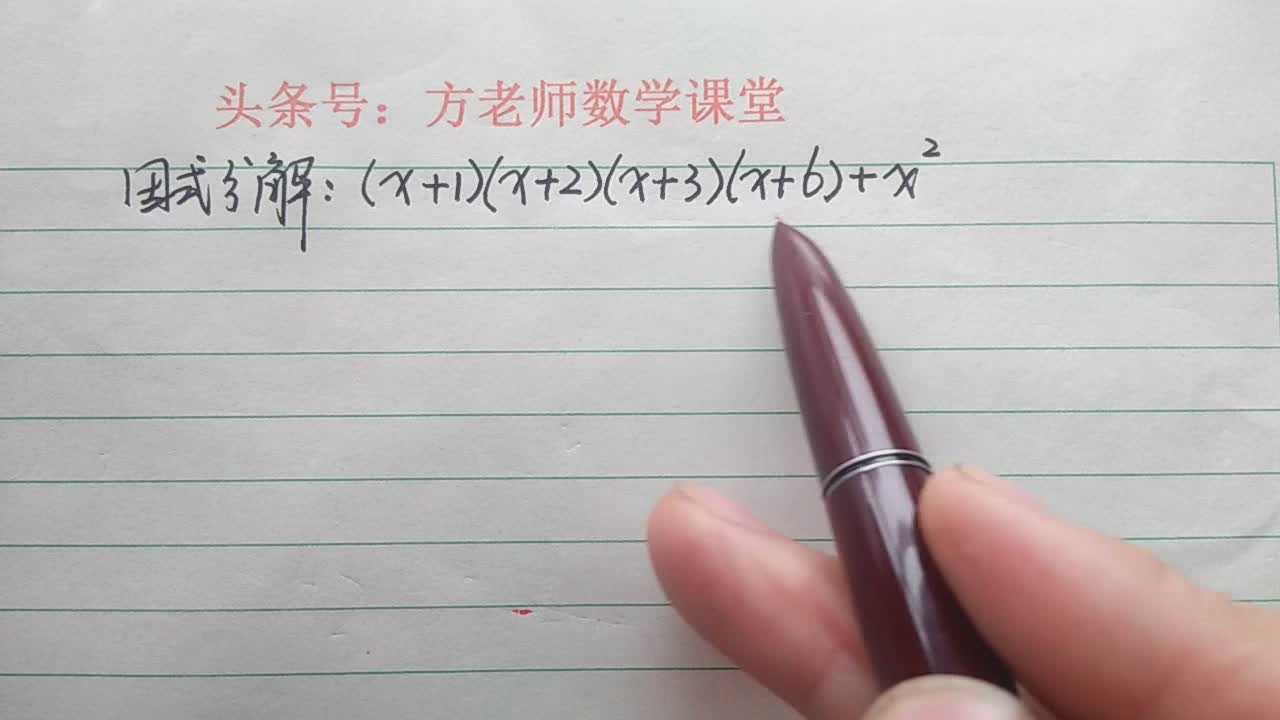 头条号：方老师数学课堂
因式分解：(x+1)(x+2)(x+3)(x+6)+x²